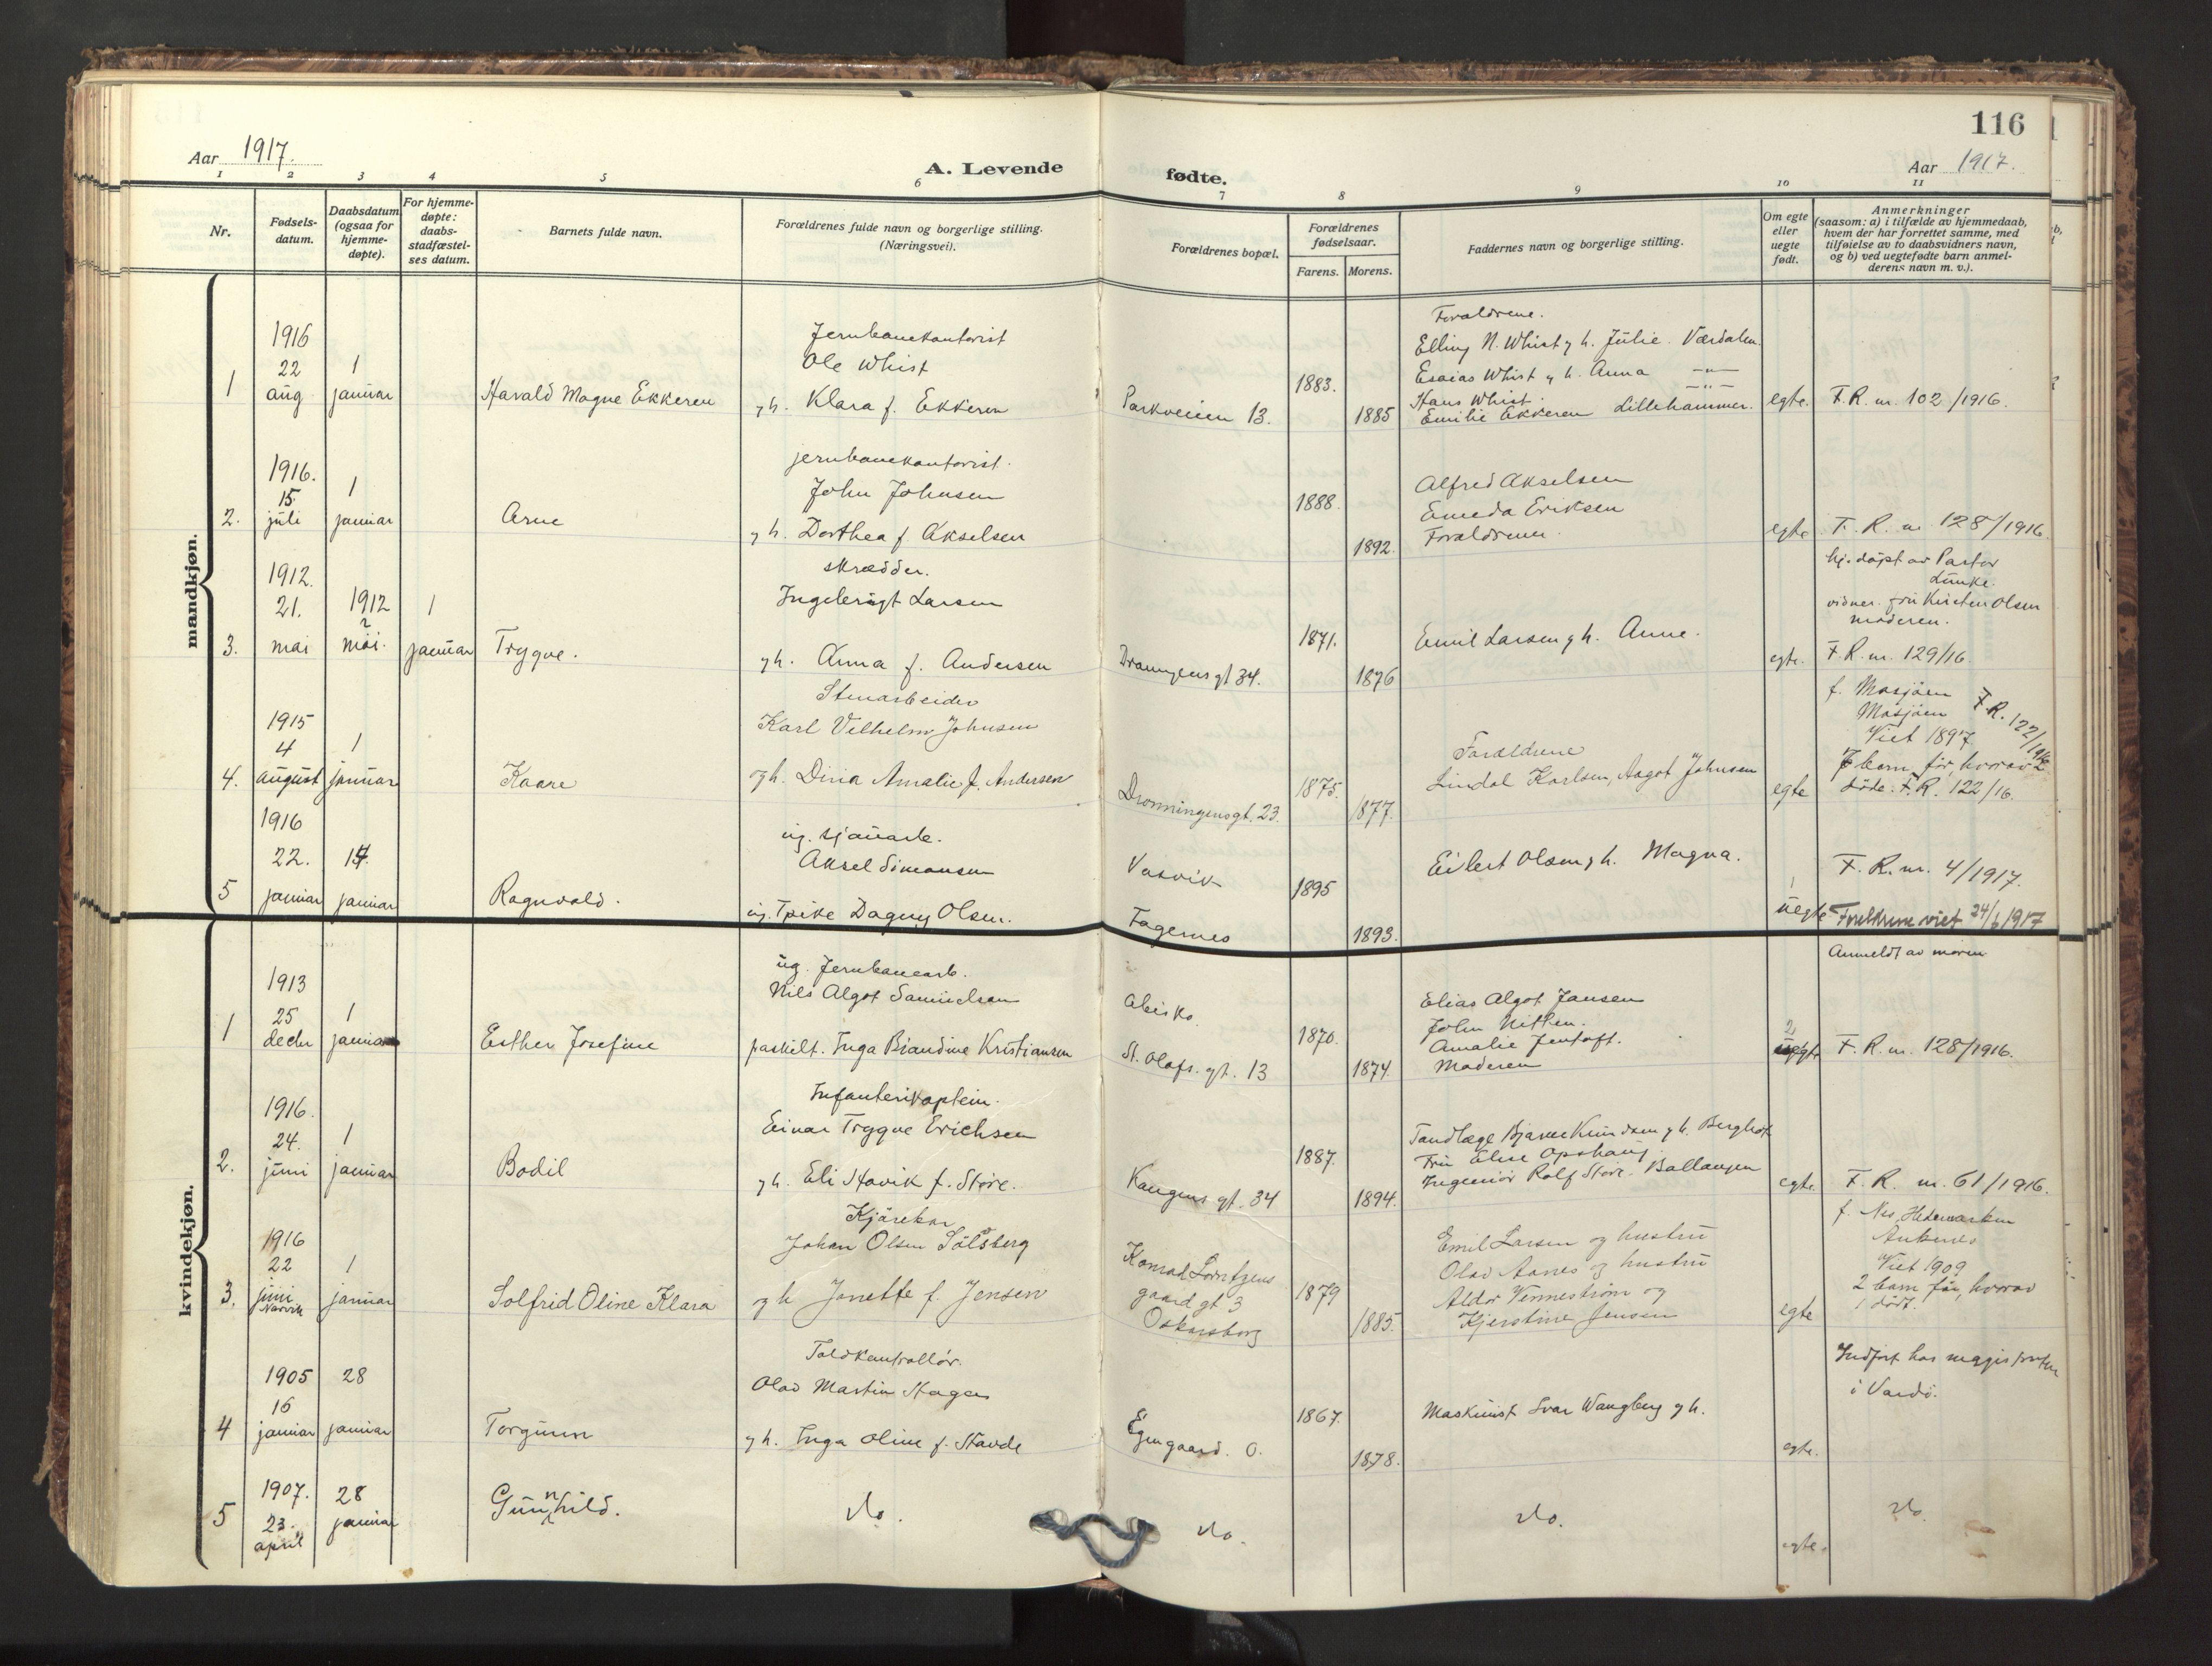 116
Aar 1917.
A. Levende
fødte.
Aar 1917.
1 2 3 4 5 6 7 8 9 10 11
Nr.
Fødsels-
datum.
Daabsdatum
(ogsaa for
hjemme-
døpte).
For hjemme-
døpte:
daabs-
stadfæstel-
ses datum.
Barnets fulde navn.
Forældrenes fulde navn og borgerlige stilling.
(Næringsvei).
Forældrenes bopæl.
Forældrenes
fødselsaar.
Farens. Morens.
Faddernes navn og borgerlige stilling.
Om egte
eller
uegte
født.
Anmerkninger
(saasom: a) i tilfælde av hjemmedaab,
hvem der har forrettet samme, med
tilføielse av to daabsvidners navn,
og b) ved uegtefødte barn anmel-
derens navn m. v.).
mandkjøn.
1
1916
22
aug
1
januar
Harald Magne Ekkeren
Jernbanekontorist
Ole Whist
g h. Klara f. Ekkeren
Parkveien 13.
1883.
1885
Forældrene.
Elling N. Whist g h. Julie Værdalen.
Esaias Whist g h. Anna —"—
Hans Whist. —"—
Emilie Ekkeren Lillehammer.
egte.
F. R. nr. 102/1916.
2.
1916.
15.
juli
1
januar
Arne
jernbanekontorist.
John Johnsen
g h. Dorthea f Akselsen
1888.
1892.
Alfred Akselsen
Emeda Eriksen
Forældrene.
egte
F. R. nr 128/1916.
3.
1912.
21.
mai
1912
2
mai.
1
januar
Trygve.
skrædder.
Ingebrigt Larsen
g h. Anna f. Andersen
Dronningens gt 34.
1871.
1876
Emil Larsen g h. Anne.
egte.
hj. døpt av Pastor
Lunke.
vidner. fru Kirsten Olsen
moderen.
F. R. nr. 129/16.
4.
1915
4
august
1
januar
Kaare
Stenarbeider
Karl Vilhelm Johnsen
og h. Dina Amalie f. Andersen
Dronningensgt. 23.
1875.
1877.
Forældrene
Lindal Karlsen, Aagot Johnsen
egte
f. Mosjøen
Mosjøen
Viet 1897
F. R. 122/1916
7 barn før, hvorav 2
døde. F. R. 122/16.
5
1916
22.
januar
14.
januar
Ragnvald.
ug. sjauarb.
Aksel Simonsen
ug. Tpike Dagny Olsen.
Vasvik
Fagernes
1895
1893.
Eilert Olsen g h. Magna.
1
uegte
F. R. nr. 4/1917.
Forældrene viet 24/6 1917
kvindekjøn.
1
1913
25
decbr
1
januar
Esther Josefine
ug. Jernbanearb.
Nils Algot Samuelsen
fraskilt. Inga Blandine Kristiansen
Abisko.
St. Olafs. gt. 13
1870.
1874.
Elias Algot Jansen
John Nitten.
Amalie Jentoft.
Moderen
2
uegte
Anmeldt av moren
F. R. nr. 128/1916.
2.
1916.
24.
juni
1
januar
Bodil
Infanterikaptein.
Einar Trygve Erichsen
g h. Eli Hovik f. Støre.
Kongens gt. 34
1887.
1894.
Tandlæge Bjarne Knudsen g h. Berghof
Fru Elise Opshaug
Ingeniør Rolf Støre. Ballangen
egte.
F. R. nr. 61/1916.
3.
1916
22
juni
Narvik
1
januar
Solfrid Oline Klara
Kjørekar
Johan Olsen Solsberg
og h Janette f. Jensen
Konrad Lorntzens
gaard gt 3
Oskarsborg
1879
1885.
Emil Larsen og hustru
Olav Aanes og hustru
Aldor Vennestrøm og
Kjerstine Jensen
egte
f. Nes, Hedemarken
Ankenes
Viet 1909
2 barn før, hvorav
1 dødt.
4
1905
16
januar
28
januar
Torgunn
Toldkontrollør.
Olav Martin Hagen
g h. Inga Oline f. Stavde
Egengaard. O.
1867.
1878.
Maskinist Ivar Wangberg g h.
egte.
Indført hos magistraten
i Vardø.
5
1907.
23.
april
28
januar
Gunnhild.
do.
do.
do.
egte.
do.